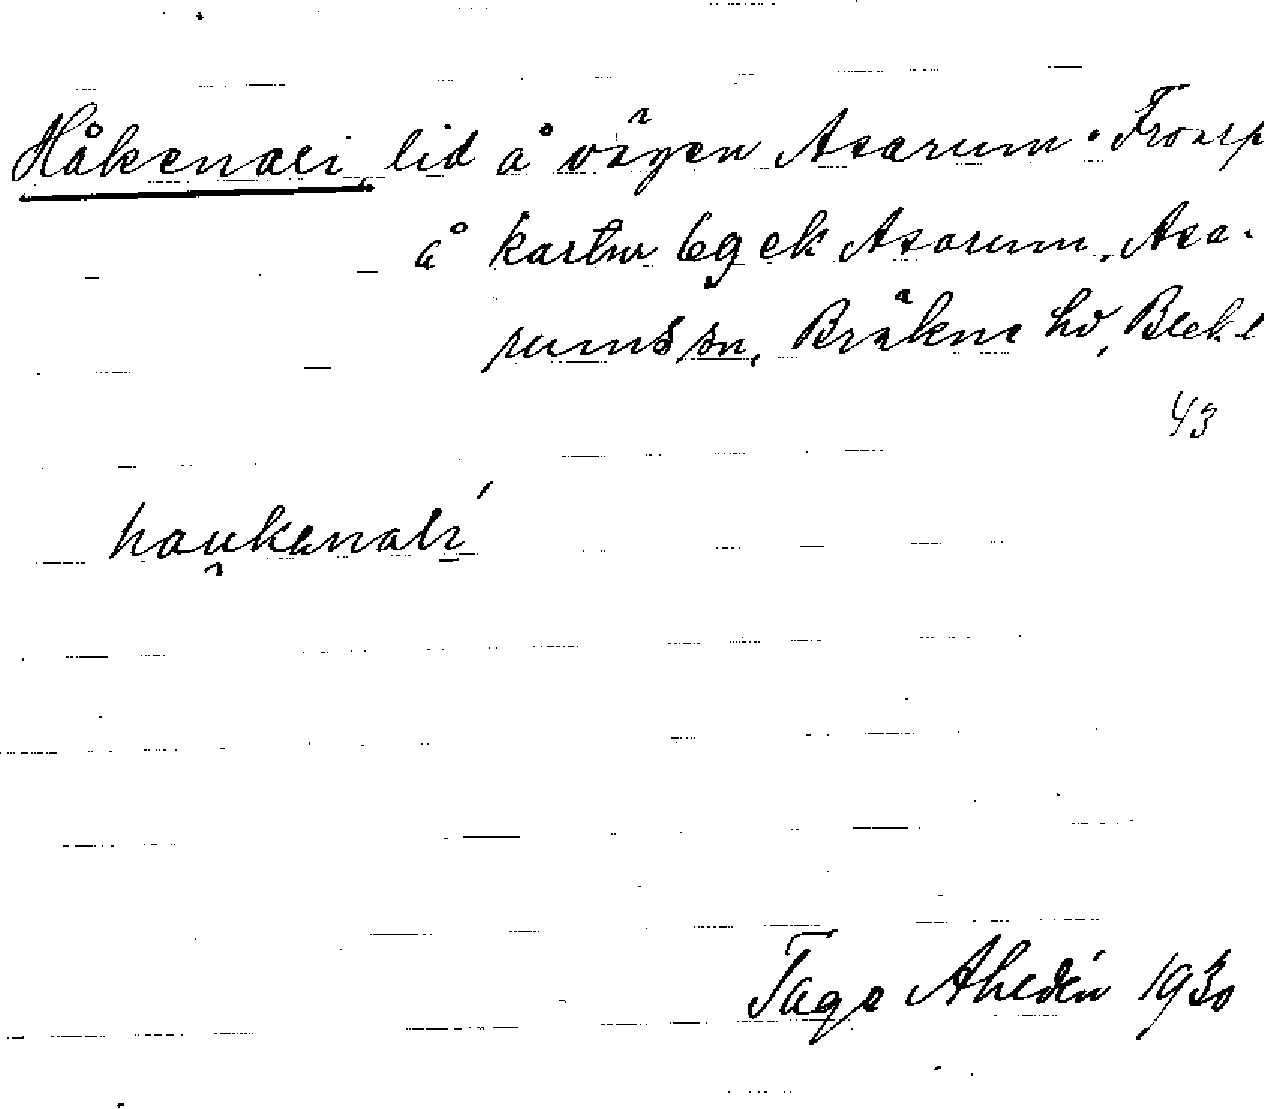 Håkenali, lid å vägen Asarum - Froarp
å kartbl 6g ek Asarum, Asa-
rums sn, Bräkne hd, Blek
43
haukanali
Tage Ahldén 1930